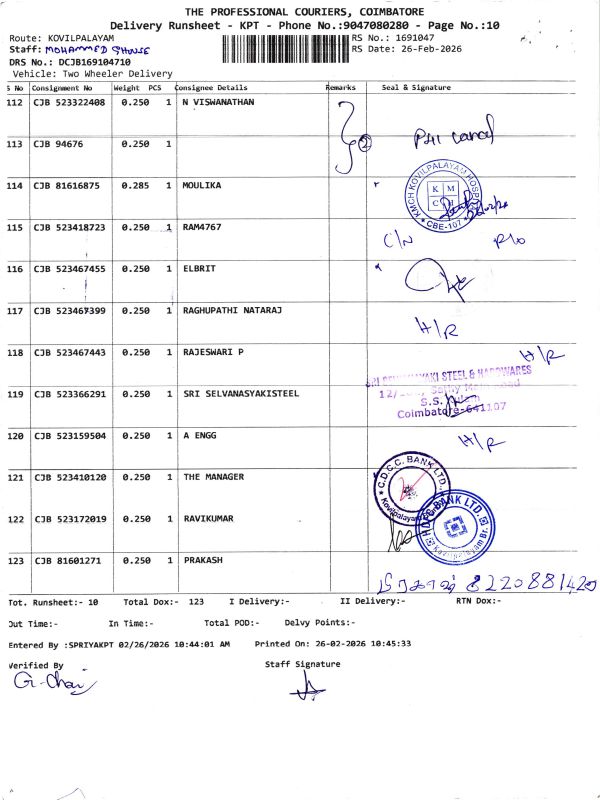 THE PROFESSIONAL COURIERS, COIMBATORE
Delivery Runsheet - KPT - Phone No.:9047080280 - Page No.:10
Route: KOVILPALAYAM
RS No.: 1691047
Staff: MOHAMMED GHOUSE
RS Date: 26-Feb-2026
DRS No.: DCJB169104710
Vehicle: Two Wheeler Delivery
S No Consignment No Weight PCS Consignee Details Remarks Seal & Signature
112 CJB 523322408 0.250 1 N VISWANATHAN
113 CJB 94676 0.250 1
114 CJB 81616875 0.285 1 MOULIKA
KMCH KOVILPALAYAM HOSPITAL
K M
C H
CBE-107
115 CJB 523418723 0.250 1 RAM4767
C/N
116 CJB 523467455 0.250 1 ELBRIT
117 CJB 523467399 0.250 1 RAGHUPATHI NATARAJ
H/R
118 CJB 523467443 0.250 1 RAJESWARI P
H/R
119 CJB 523366291 0.250 1 SRI SELVANASYAKISTEEL
STEEL & HARDWARES
S.S.
Coimbatore-641107
120 CJB 523159504 0.250 1 A ENGG
H/R
121 CJB 523410120 0.250 1 THE MANAGER
C.D.C.C. BANK LTD.,
Kovilpalayam
122 CJB 523172019 0.250 1 RAVIKUMAR
HDFC BANK LTD.
123 CJB 81601271 0.250 1 PRAKASH
8220881420
Tot. Runsheet:- 10 Total Dox:- 123 I Delivery:- II Delivery:- RTN Dox:-
Out Time:- In Time:- Total POD:- Delvy Points:-
Entered By :SPRIYAKPT 02/26/2026 10:44:01 AM Printed On: 26-02-2026 10:45:33
Verified By Staff Signature